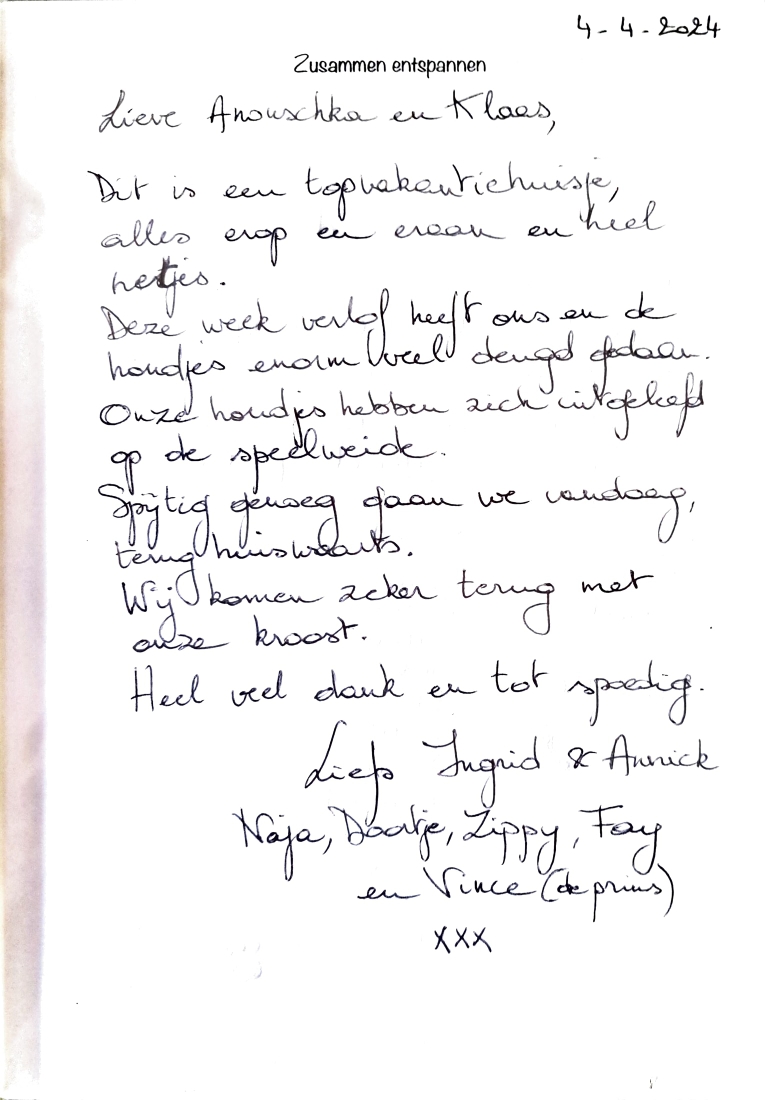 4-4-2024
Zusammen entspannen
Lieve Anouschka en Klaas,
Dit is een topvakantiehuisje,
alles erop en eraan en heel
netjes.
Deze week verlof heeft ons en de
hondjes enorm veel deugd gedaan.
Onze hondjes hebben zich uitgeleefd
op de speelweide.
Spijtig genoeg gaan we vandaag,
terug huiswaarts.
Wij komen zeker terug met
onze kroost.
Heel veel dank en tot spoedig.
Liefs Ingrid & Annick
Naja, Doortje, Zippy, Fay
en Vince (de prins)
xxx